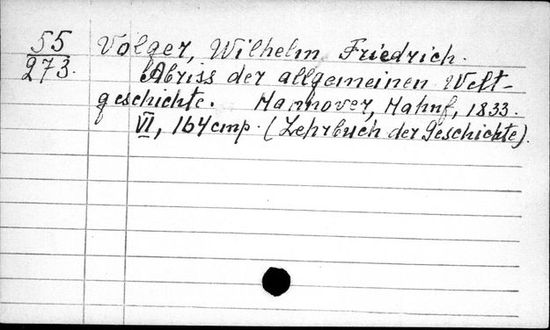 55 Volger, Wilhelm Friedrich.
273. Abriss der allgemeinen Welt-
geschichte. Hannover, Hahn, 1833.
VI, 164 стр. (Lehrbuch der Geschichte).